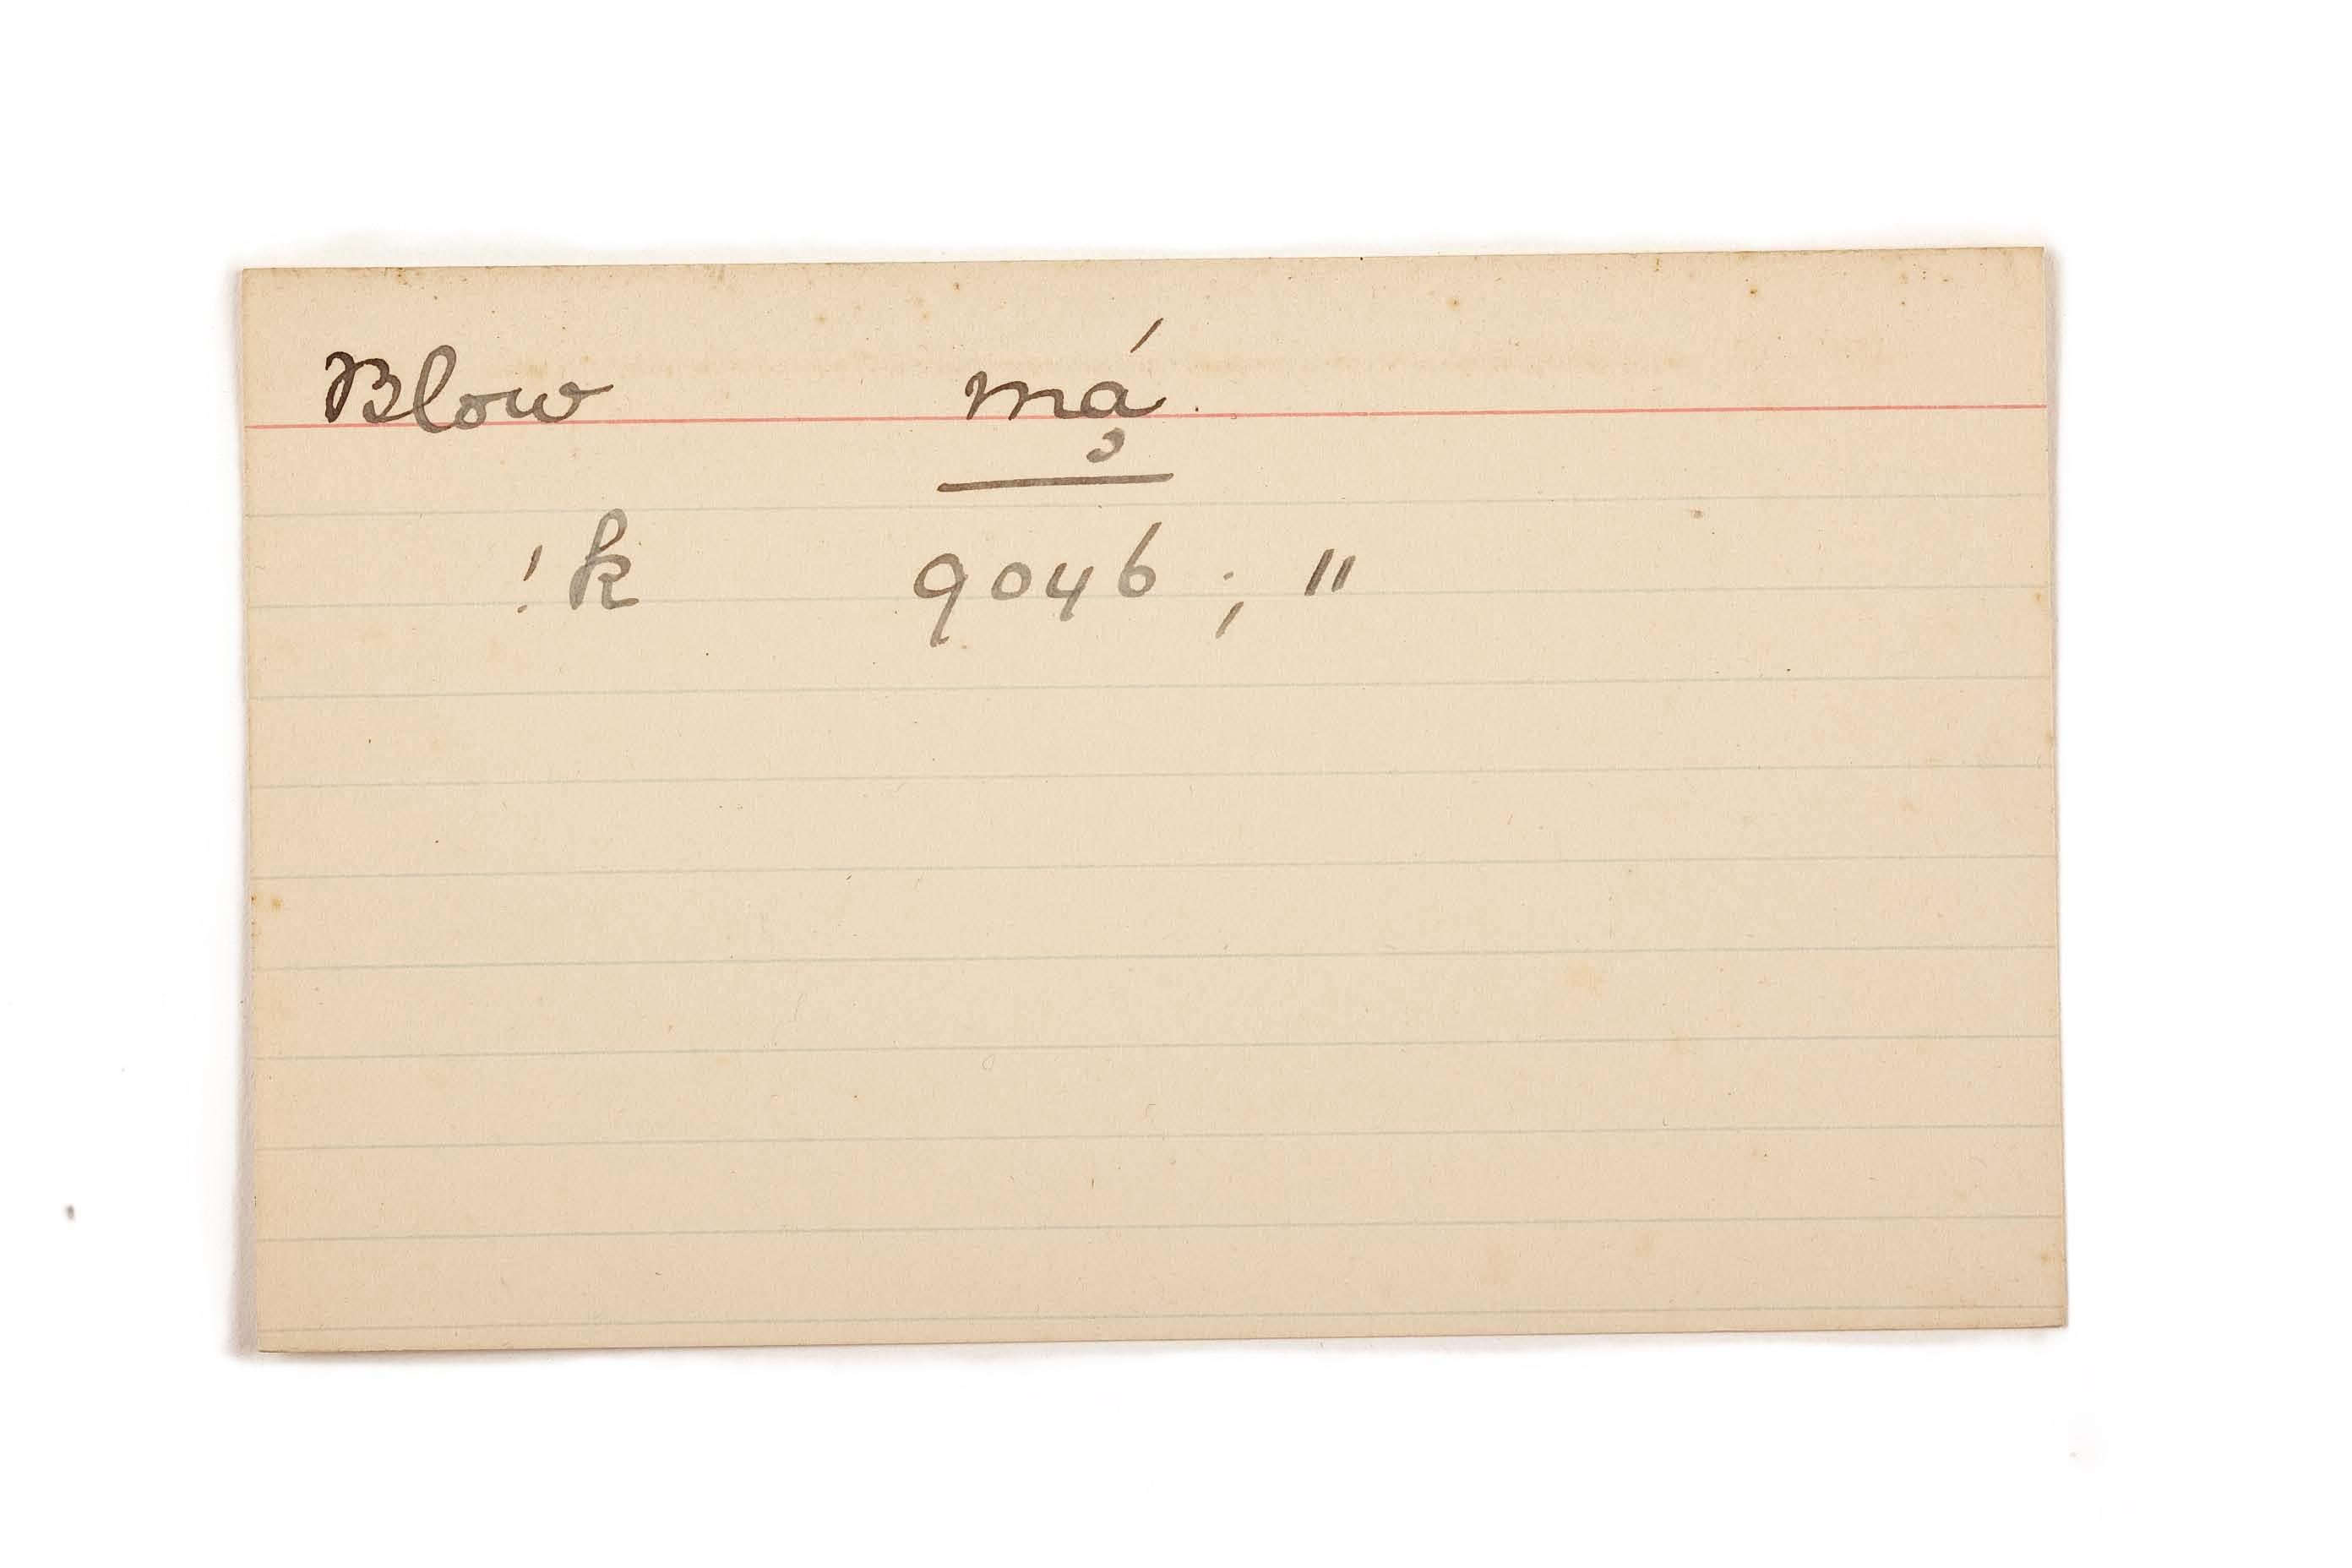 Blow má̹
!k 9046 ; "